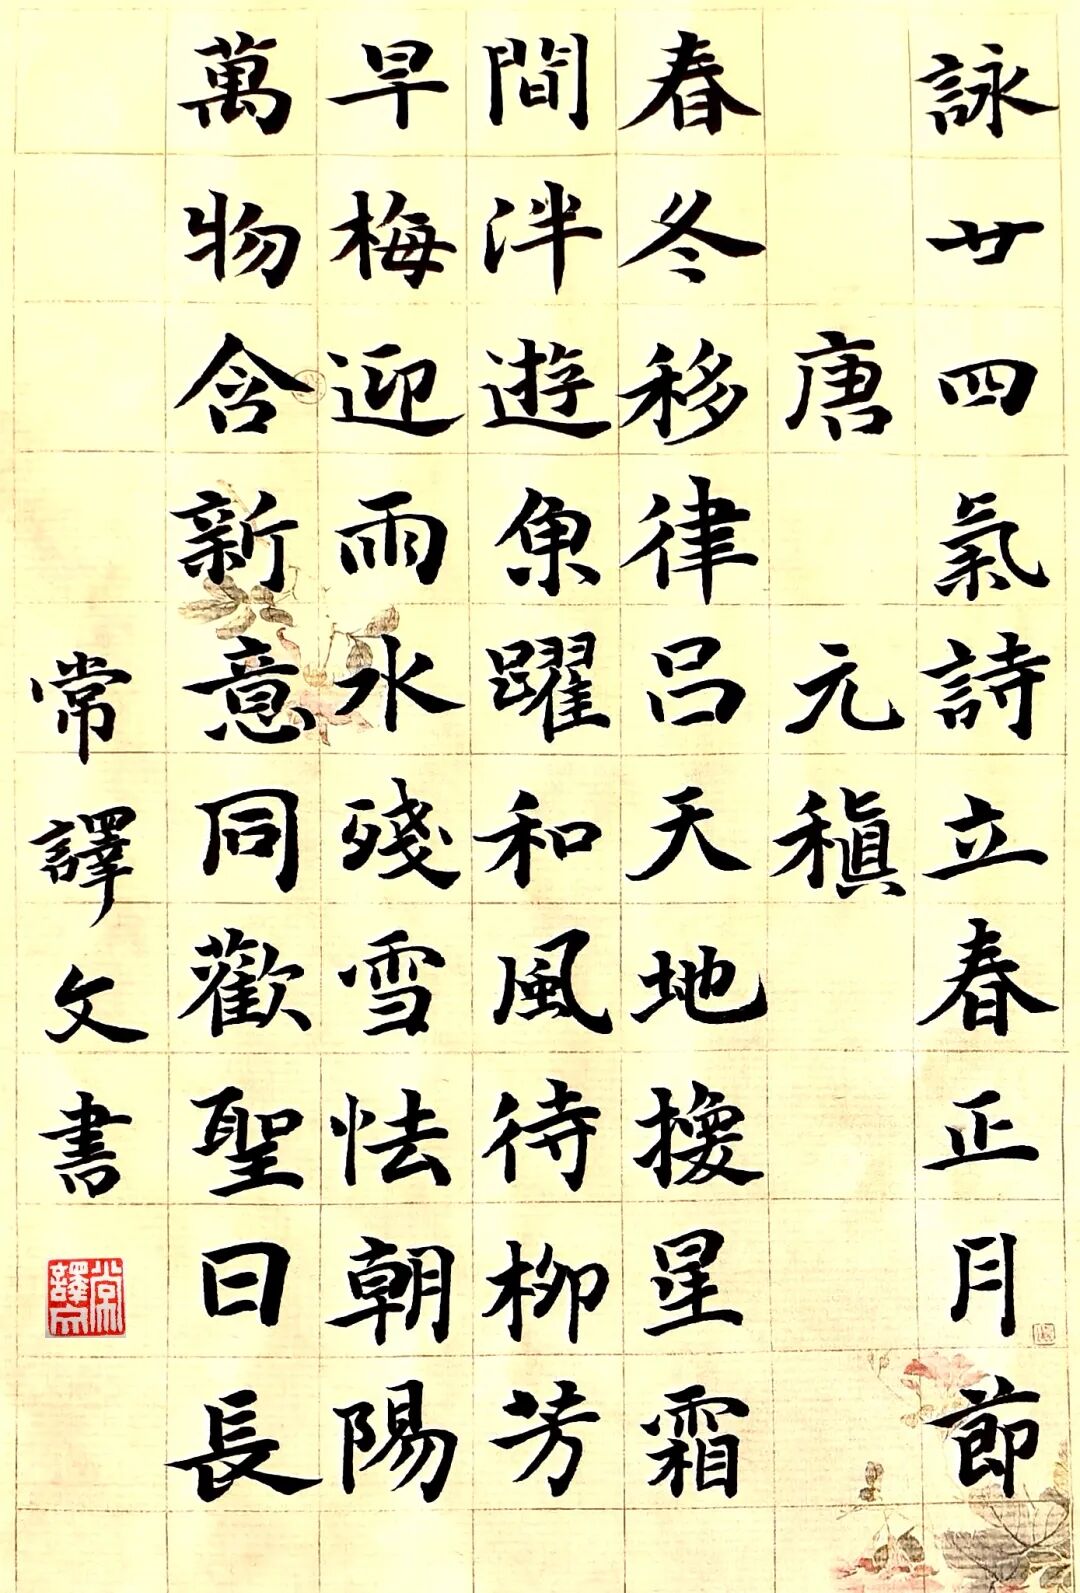 詠廿四氣詩立春正月節
唐元稹
春冬移律呂天地換星霜
間泮遊魚躍和風待柳芳
早梅迎雨水殘雪怯朝陽
萬物含新意同歡聖日長
常譯文書
常譯文